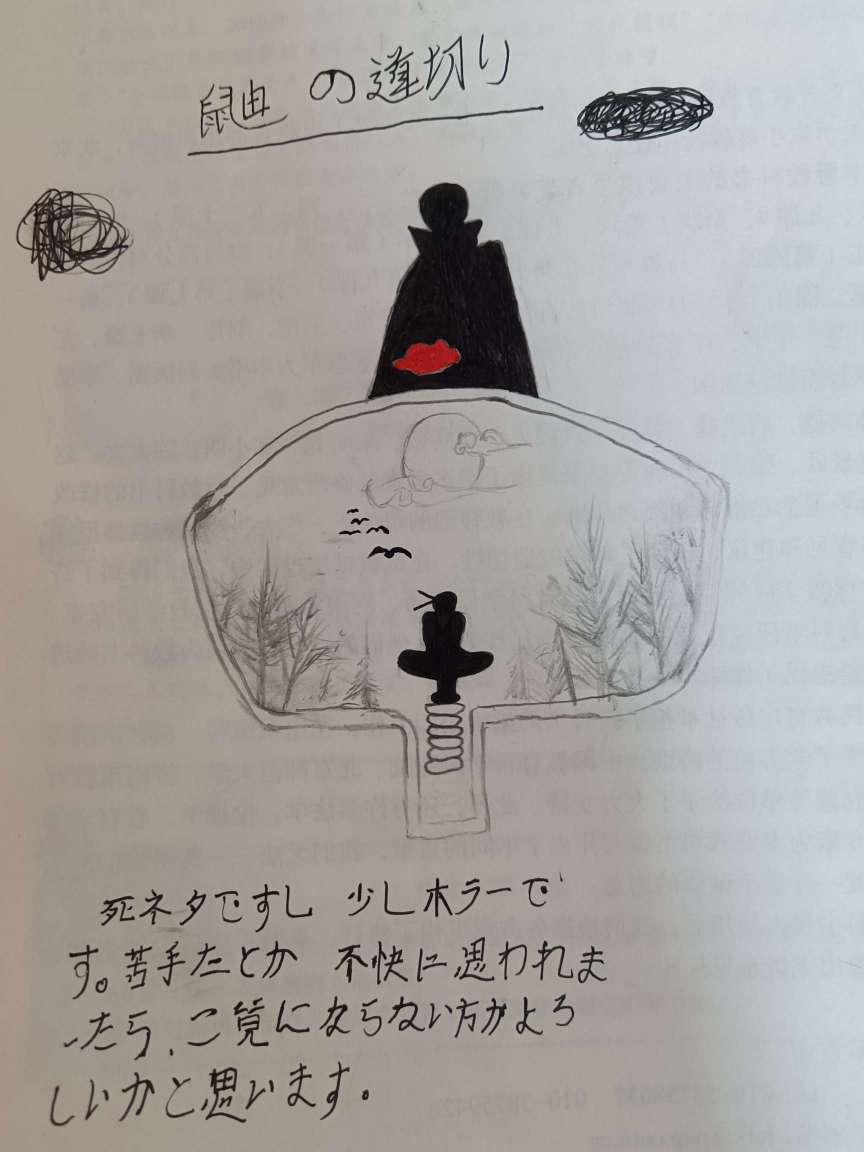 鼬 の道切り
死ネタですし 少しホラーで
す。苦手だとか 不快に思われま
したら、ご覧にならない方がよろ
しいかと思います。